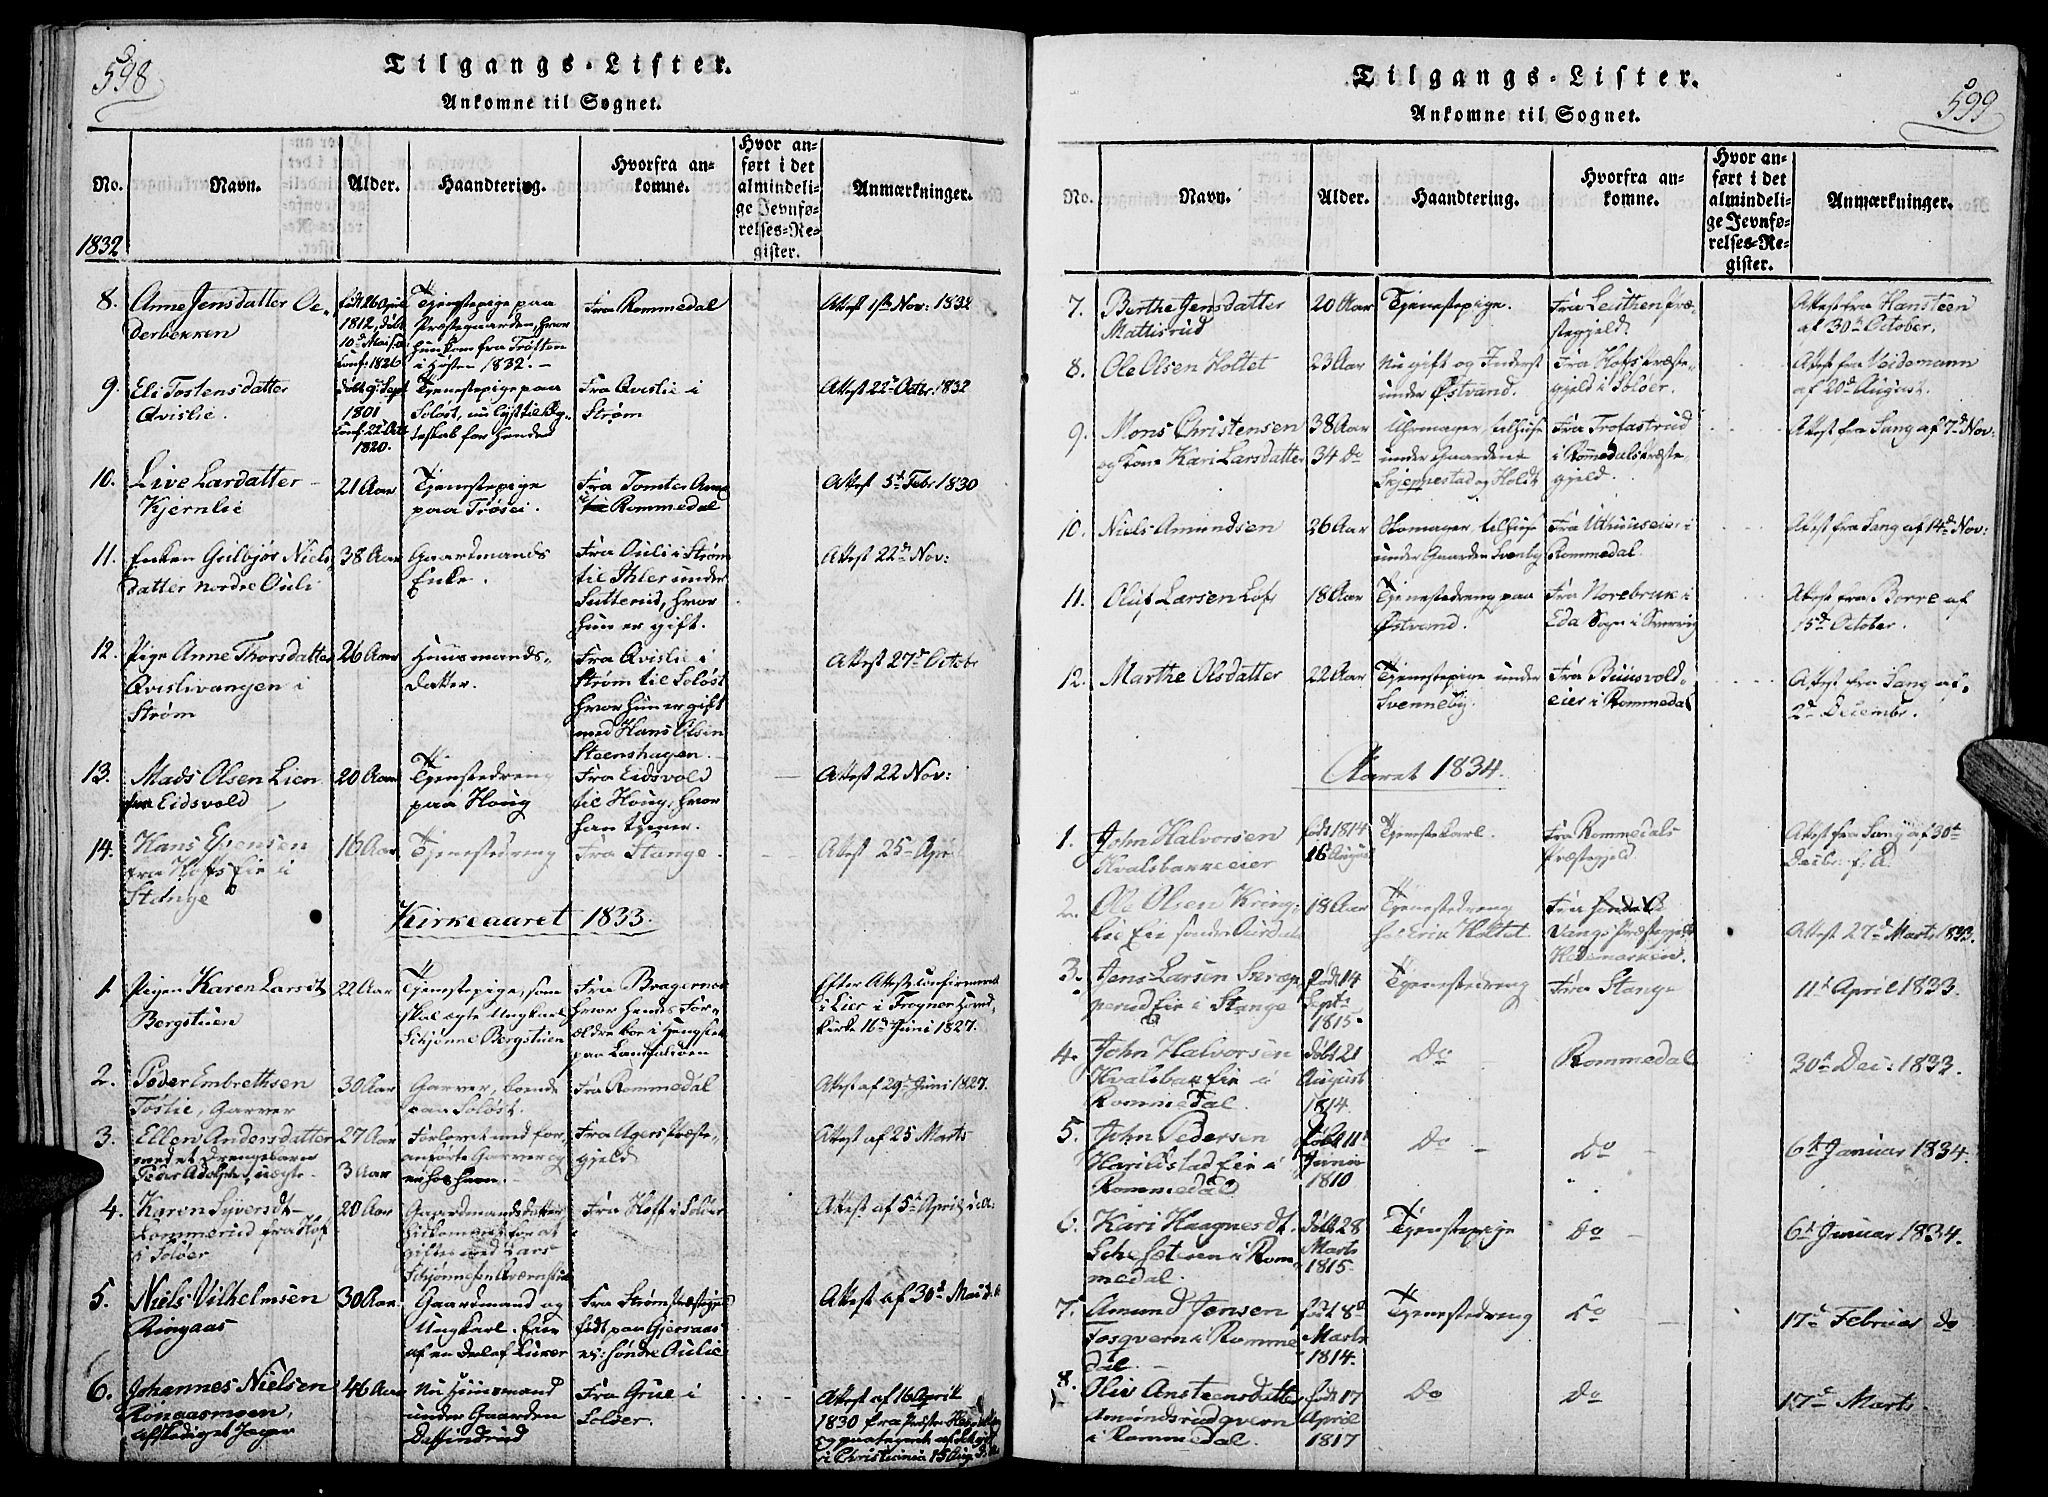 598
Tilgangs-Lister.
Ankomne til Sognet.
No.
Navn.
Alder.
Haandtering.
Hvorfra an-
komne.
Hvor an-
ført i det
almindeli-
ge Jevnfø-
relses-Re-
gister.
Anmærkninger.
1832
8. Anne Jensdatter Oe-
derbekken
født 26 April
1812, døbt
10de Mai s.A.
Conf: 1826
Tjenestepige paa
Præstegaarden, hvor
hun kom fra
i Høsten 1832.
Fra Rommedal
Attest 1ste Nov: 1832
9. Eli Tostensdatter
Qvislie.
døbt 9de Sept
1801
Conf: 22 Octr
1820.
Tjenestepige paa
Soløst, nu lyst til Æg-
teskab for hende
Fra Qvislie i
Strøm
Attest 22de Octbr: 1832
10. Live Larsdatter
Kjernlie
21 Aar
Tjenestepige
paa Trøsei.
Fra Tomter
Rommedal
Attest 5te Febr 1830
11. Enken Gulbjør Niels-
datter nordre Ouli
38 Aar
Gaardmands
Enke.
Fra Ouli i Strøm
til Ihler under
Sutterud, hvor
hun er gift.
Attest 22de Nov:
12. Pige Anne Thorsdatter
Qvislivangen i
Strøm
26 Aar
Huusmands-
datter.
Fra Qvislie i
Strøm til Soløst
hvor hun er gift
med Hans Olsen
Steenshagen.
Attest 27de Octobr
13. Mads Olsen Lien
fra Eidsvold
20 Aar
Tjenestedreng
paa Houg
Fra Eidsvold
til Houg, hvor
han tjener.
Attest 22 Nov:
14. Hans Espensen
fra Hoffs Eie i
Stange
16 Aar
Tjenestedreng
Fra Stange.
Attest 25de April
Kirkeaaret 1833.
1. Pigen Karen Larsdt
Bergstuen
22 Aar
Tjenestepige, som
skal ægte Ungkarl
Schjønne Bergstuen
Fra Bragernæs
hvor hendes For-
ældre boe i
paa Landfaldøen
Efter Attest confirmeret
i Lier i Frogner Hoved
kirke 16de Juni 1827.
2. Peder Embrethsen
Toslie, Garver
30 Aar
Garver, boende
paa Soløst.
Fra Rommedal
Attest af 29de Juni 1827.
3. Ellen Andersdatter
med et Drengebarn
Peder Adolph, uægte
27 Aar
3 Aar
Forlovet med for-
anførte Garver og
er hos ham.
Fra Agers Præste-
gjeld.
Attest af 25 Marts
4. Karen Syversdt
Lommerud fra Hof
i Soløer
20 Aar
Gaardmandsdatter
hidkommet for at
giftes med Lars
Schjønnesen
Fra Hoff i Soløer
Attest af 5te April d:A:
5. Niels Vilhelmsen
Ringaas
30 Aar
Gaardmand og
Ungkarl. Eier
af en Deel af Lurer
Fra Strøms Præstegjeld
født paa Gjersaas
søndre Oulie
Attest af 30de Mai d.A.
6. Johannes Nielsen
Rønaasmoen,
afskediget Jæger
46 Aar
Nu Huusmand
under Gaarden
Dessindrud
Fra Grue i
Soløer.
Attest af 16 April
1830 fra Præsten
og paategnet af
i Christiania 15 Aug
599
Tilgangs-Lister.
Ankomne til Sognet.
No.
Navn.
Alder.
Haandtering.
Hvorfra an-
komne.
Hvor an-
ført i det
almindeli-
ge Jevnfø-
relses-Re-
gister.
Anmærkninger.
7. Berthe Jensdatter
Mattisrud
20 Aar
Tjenestepige.
Fra Leuthens Præ-
stegjeld.
Attest fra Hansteen
af 30de October.
8. Ole Olsen Holtet
23 Aar
Nu gift og Inderst
under Østvand.
Fra Hofs Præste-
gjeld i Soløer.
Attest fra Veidemann
af 20de August.
9. Mons Christensen
og Kone Kari Larsdatter
38 Aar
34 Do
Uhrmager, tilhuse
under Gaardene
Skjeppestad og Holdt
Fra Trotastrud
i Rommedals Præste
gjeld.
Attest fra Sang af 7de Nov:
10. Niels Amundsen
26 Aar
Skomager, tilhuse
under Gaarden Svenby
Fra Uthuuseier i
Rommedal.
Attest fra Sang af 14de Nov:
11. Oluf Larsen Lofs
18 Aar
Tjenestedreng paa
Østvand.
Fra Norebruk i
Eda Sogn i Sverrig
Attest fra Borre af
15de October.
12. Marthe Olsdatter
22 Aar
Tjenestepige under
Svenneby.
Fra Buusvold-
eier i Rommedal
Attest fra Sang af
2de Decembr.
Aaret 1834.
1. John Halvorsen
Kvalsbakkeeier
født 1814
16 August
Tjenestekarl.
Fra Rommedals
Præstegjeld.
Attest fra Sang af 30te
Decbr. f. A.
2. Ole Olsen Kring-
lie Eie søndre Aurdal
18 Aar
Tjenestedreng
hos Erik Holtet
Fra
Vangs Præstegjeld
Hedemarken.
Attest 27de Marts 1833.
3. Jens Larsen Skræp-
perud Eie i Stange
født 14
Septr
1815.
Tjenestedreng
Fra Stange
11te April 1833.
4. John Halvorsen
Kvalsbak Eie i
Rommedal.
døbt 21
August
1814.
Do
Rommedal
30te Dec: 1833.
5. John Pedersen
Harildstad Eie i
Rommedal
født 11te
Junii
1810
Do
Do
6te Januar 1834.
6. Kari Haagnesdt.
Schesæteren i Rom-
medal.
døbt 28
Marts
1815.
Tjenestepige
Do
6te Januar 1834.
7. Amund Jensen
Fosqvern i Romme
dal.
født 8de
Marts
1814.
Tjenestedreng
Do
17de Februar do
8. Oliv Ansteensdatter
Amundsrudqvern
i Rommedal.
født 17
April
1817
Do
Do
17de Marts.